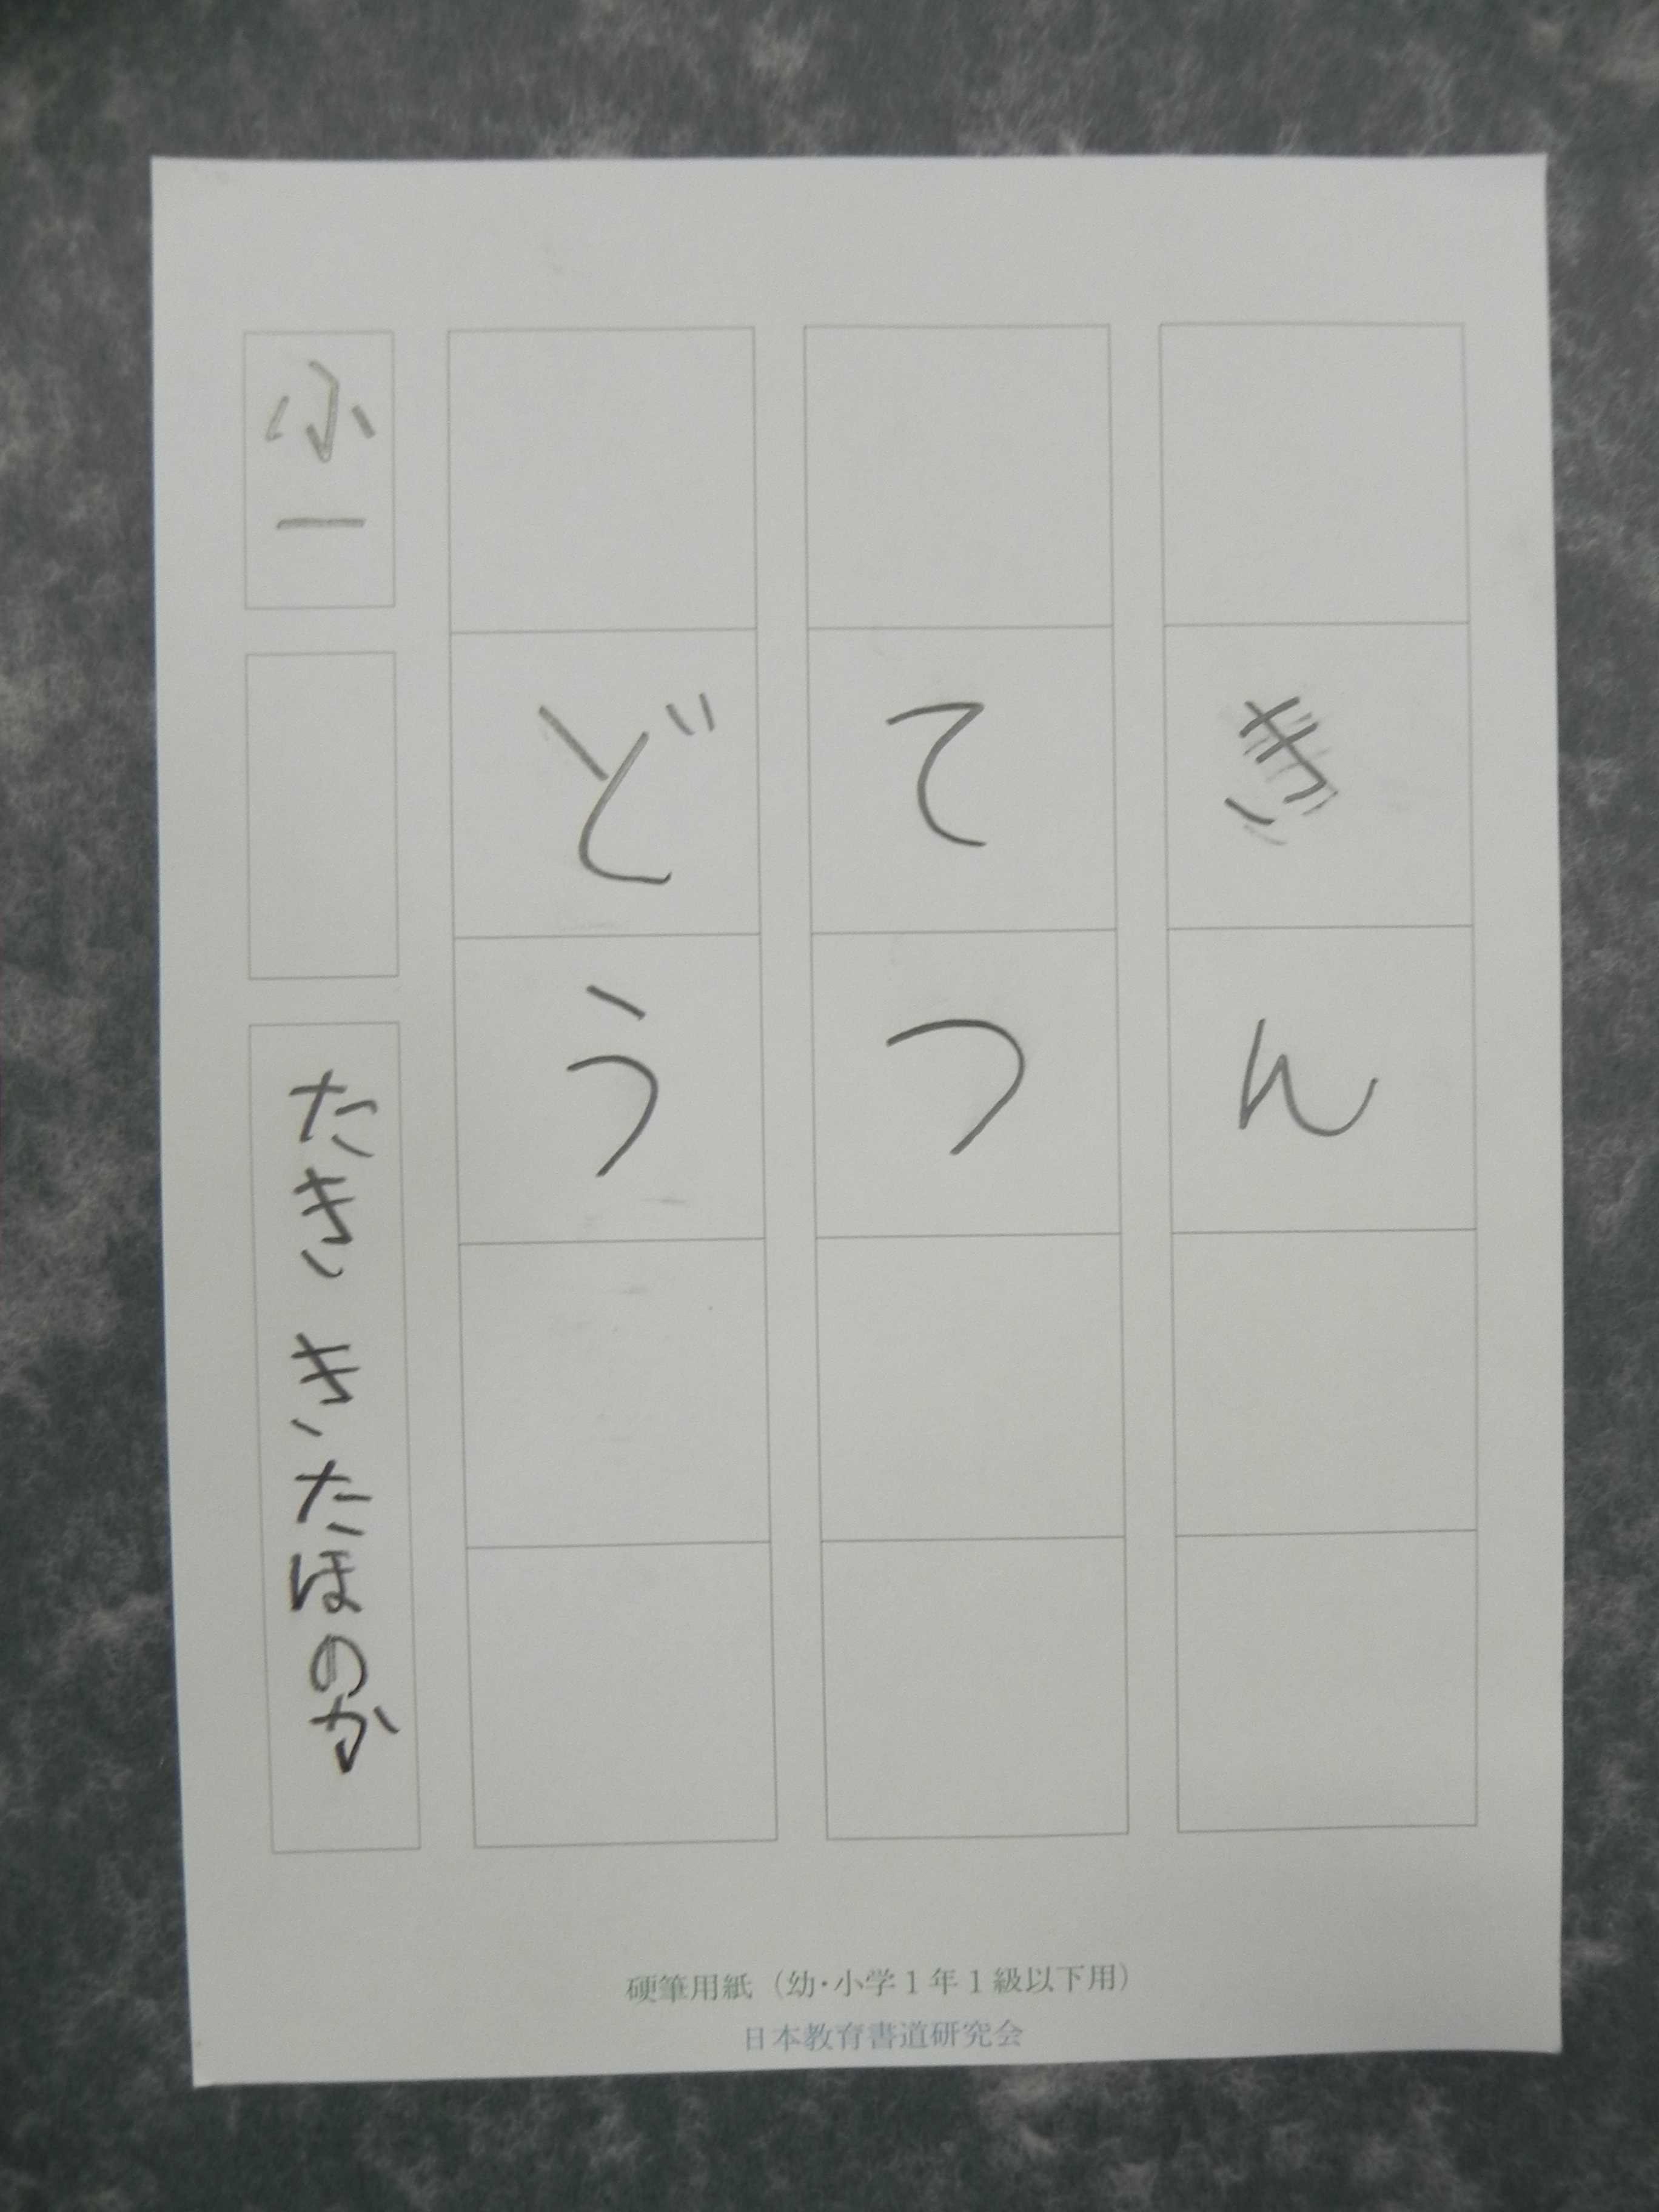 きん
てつ
どう
小一
たき きたほのか
硬筆用紙（幼・小学1年1級以下用）
日本教育書道研究会